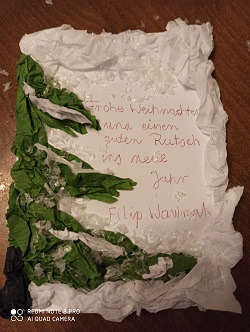 Frohe Weihnachten
und einen
guten Rutsch
ins neue
Jahr
Filip
REDMI NOTE 8 PRO
AI QUAD CAMERA